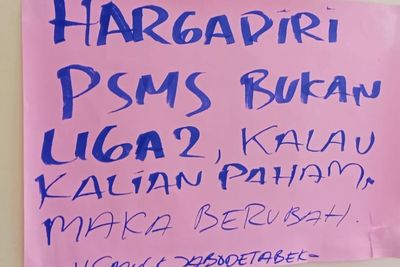 HARGADIRI
PSMS BUKAN
LIGA2, KALAU
KALIAN PAHAM,
MAKA BERUBAH.
JABODETABEK-